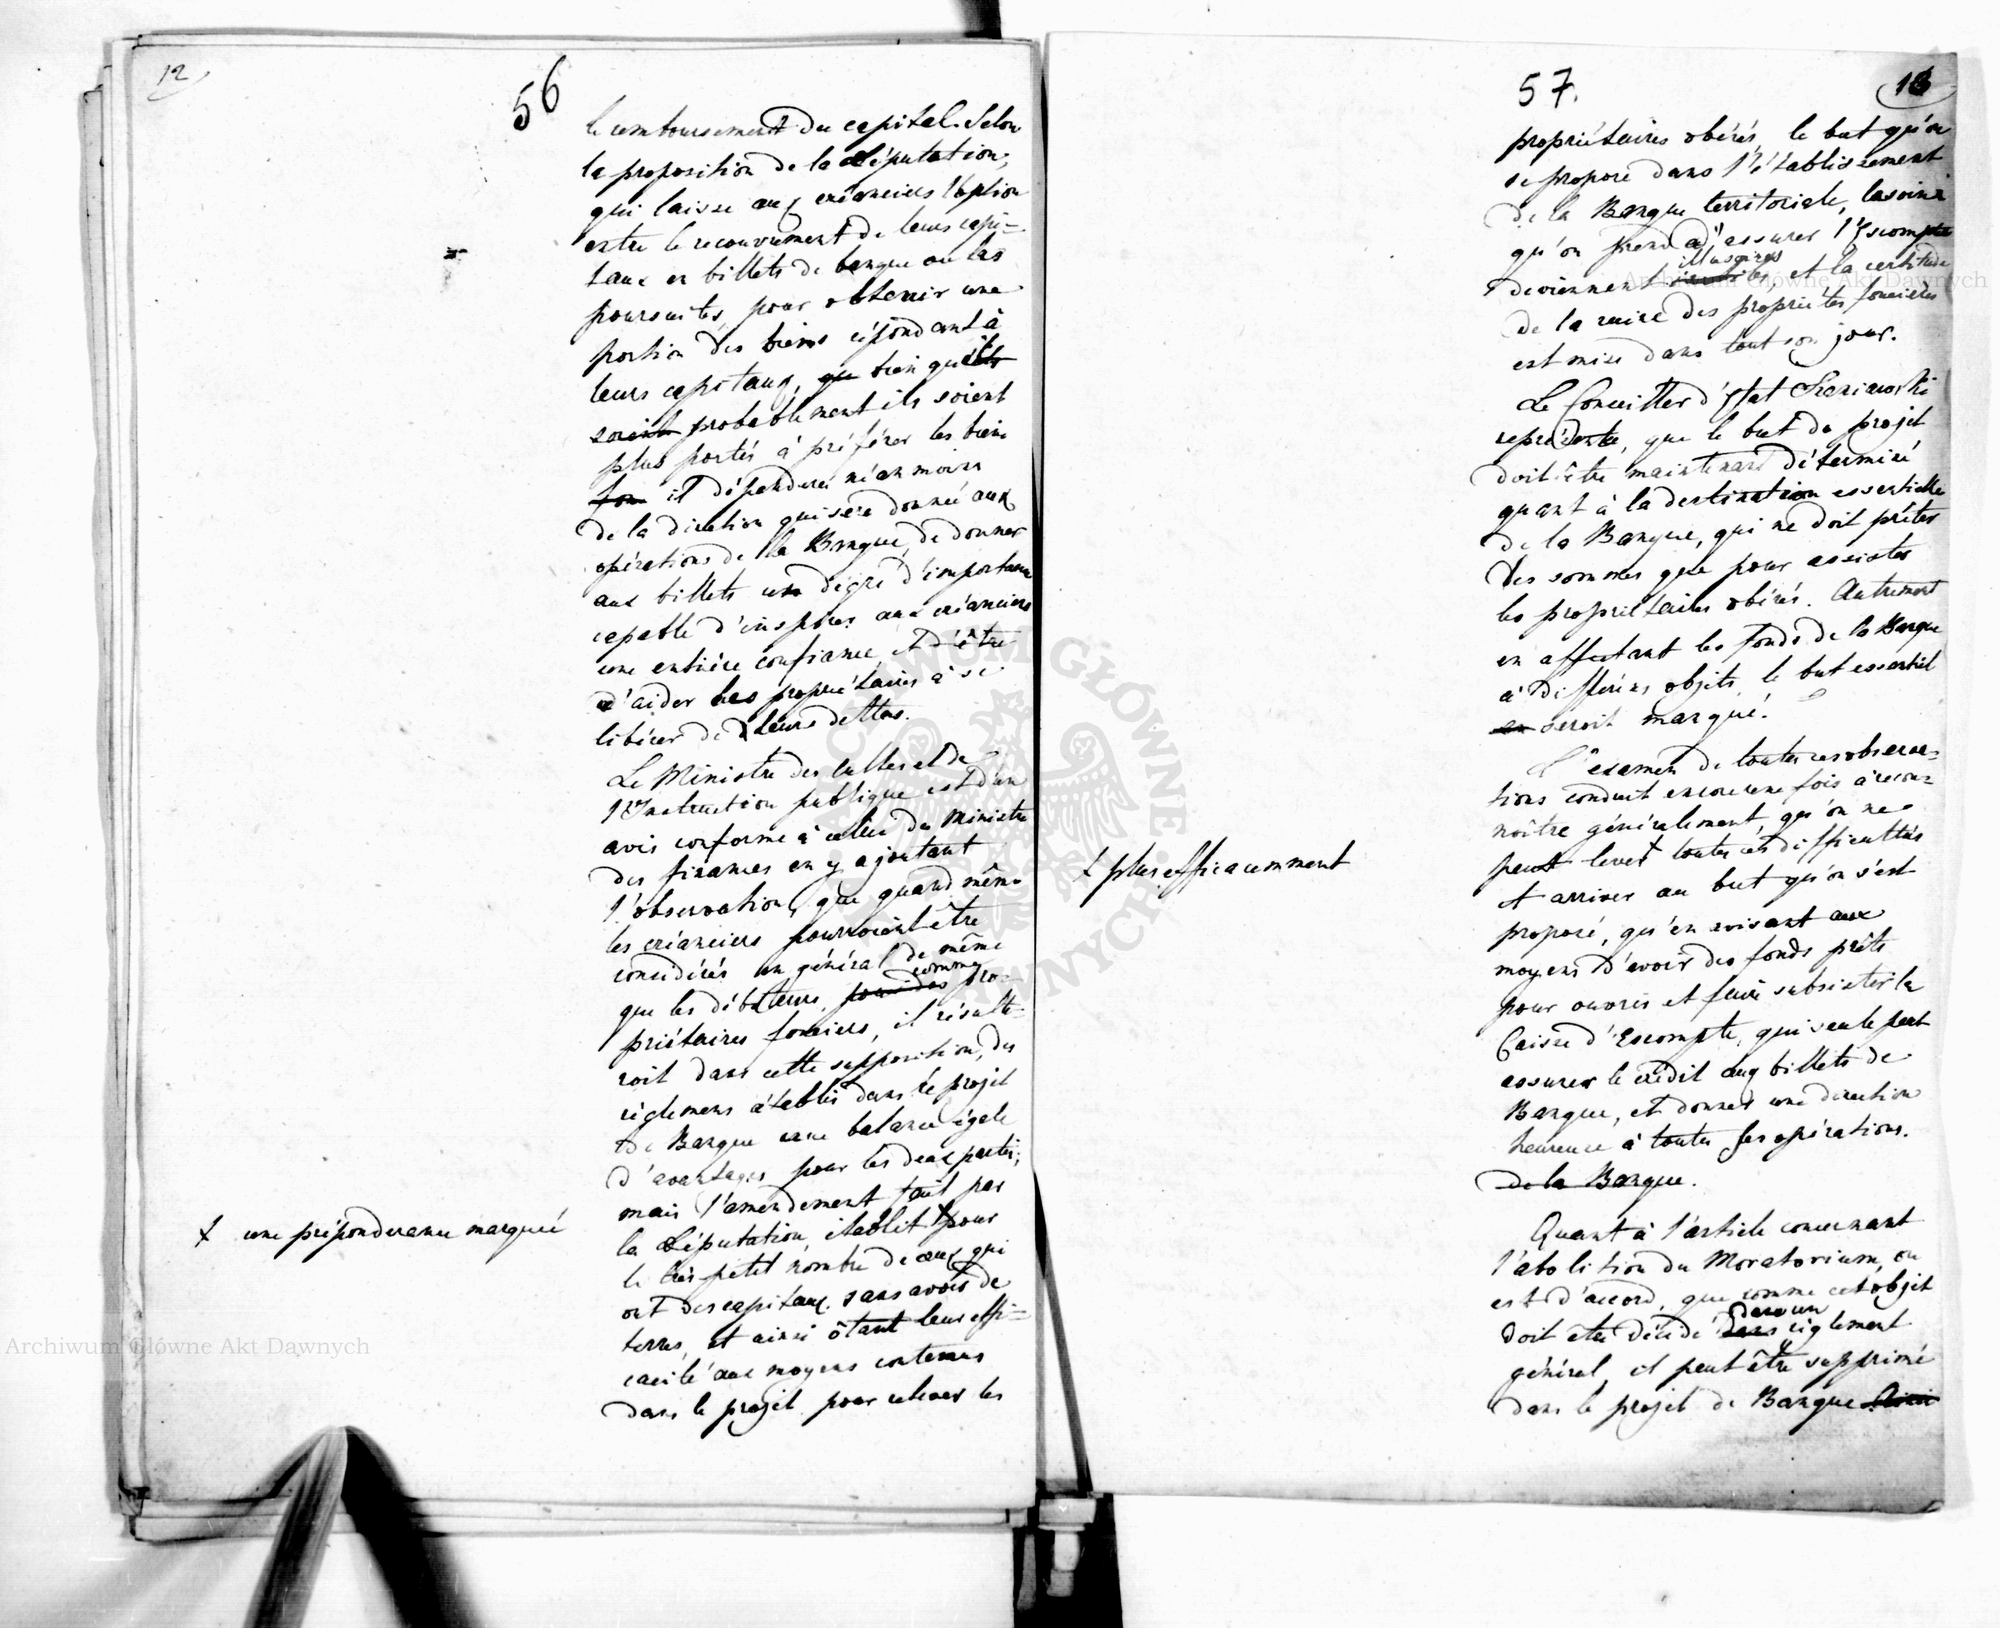 12
56
le remboursement du capital. Selon
la proposition de la Députation,
qui laisse aux créanciers l'option
entre le recouvrement de leurs capi=
taux en billets de banque ou les
poursuites, pour obtenir une
portion des biens répondant à
leurs capitaux, que bien qu'ils
soient probablement ils soient
plus portés à préférer les biens
il dépendra néanmoins
de la direction qui sera donnée aux
opérations de la Banque, de donner
aux billets un degré d'importance
capable d'inspirer aux créanciers
une entière confiance, et d'être
d'aider les propriétaires à se
libérer de leurs dettes.
Le Ministre des Cultes et de
l'Instruction publique est d'un
avis conforme à celui du Ministre
des finances en y ajoutant
l'observation, que quand même
les créanciers pourroient être
considérés en général de même
que les débiteurs, comme pro-
priétaires fonciers, il résulte-
roit dans cette supposition, des
règlemens établis dans le projet
de Banque une balance égale
d'avantages pour les deux partis;
mais l'amendement fait par
la Députation, établit + pour
le très petit nombre de ceux qui
ont des capitaux sans avoir de
terres, et ainsi ôtant leur effi=
cacité aux moyens contenus
dans le projet pour relever les
+ une préponderance marquée
57.
13
propriétaires obérés, le but qu'on
se propose dans l'établissement
de la Banque territoriale, le soin
qu'on prend d'assurer l'Escompte
illusoires
deviennent, et la certitude
de la ruine des propriétés foncières
est mise dans tout son jour.
Le Conseiller d'Etat
représente, que le but du projet
doit être maintenant déterminé
quant à la destination essentielle
de la Banque, qui ne doit prêter
des sommes que pour assister
les propriétaires obérés. Autrement
en affectant les fonds de la Banque
à différens objets, le but essentiel
en seroit manqué.
L'examen de toutes ces observa=
tions conduit encore une fois à recon=
noître généralement, qu'on ne
peut lever + toutes ces difficultés
et arriver au but qu'on s'est
proposé, qu'en avisant aux
moyens d'avoir des fonds prêts
pour ouvrir et faire subsister la
Caisse d'Escompte, qui seule peut
assurer le crédit aux billets de
Banque, et donner une direction
heureuse à toutes ses opérations.
de la Banque.
+ plus efficacement
Quant à l'article concernant
l'abolition du Moratorium, on
est d'accord, que comme cet objet
dans un
doit être décidé dans règlement
général, il peut y être supprimé
dans le projet de Banque
Archiwum Główne Akt Dawnych
Archiwum Główne Akt Dawnych
ARCHIWUM GŁÓWNE AKT DAWNYCH